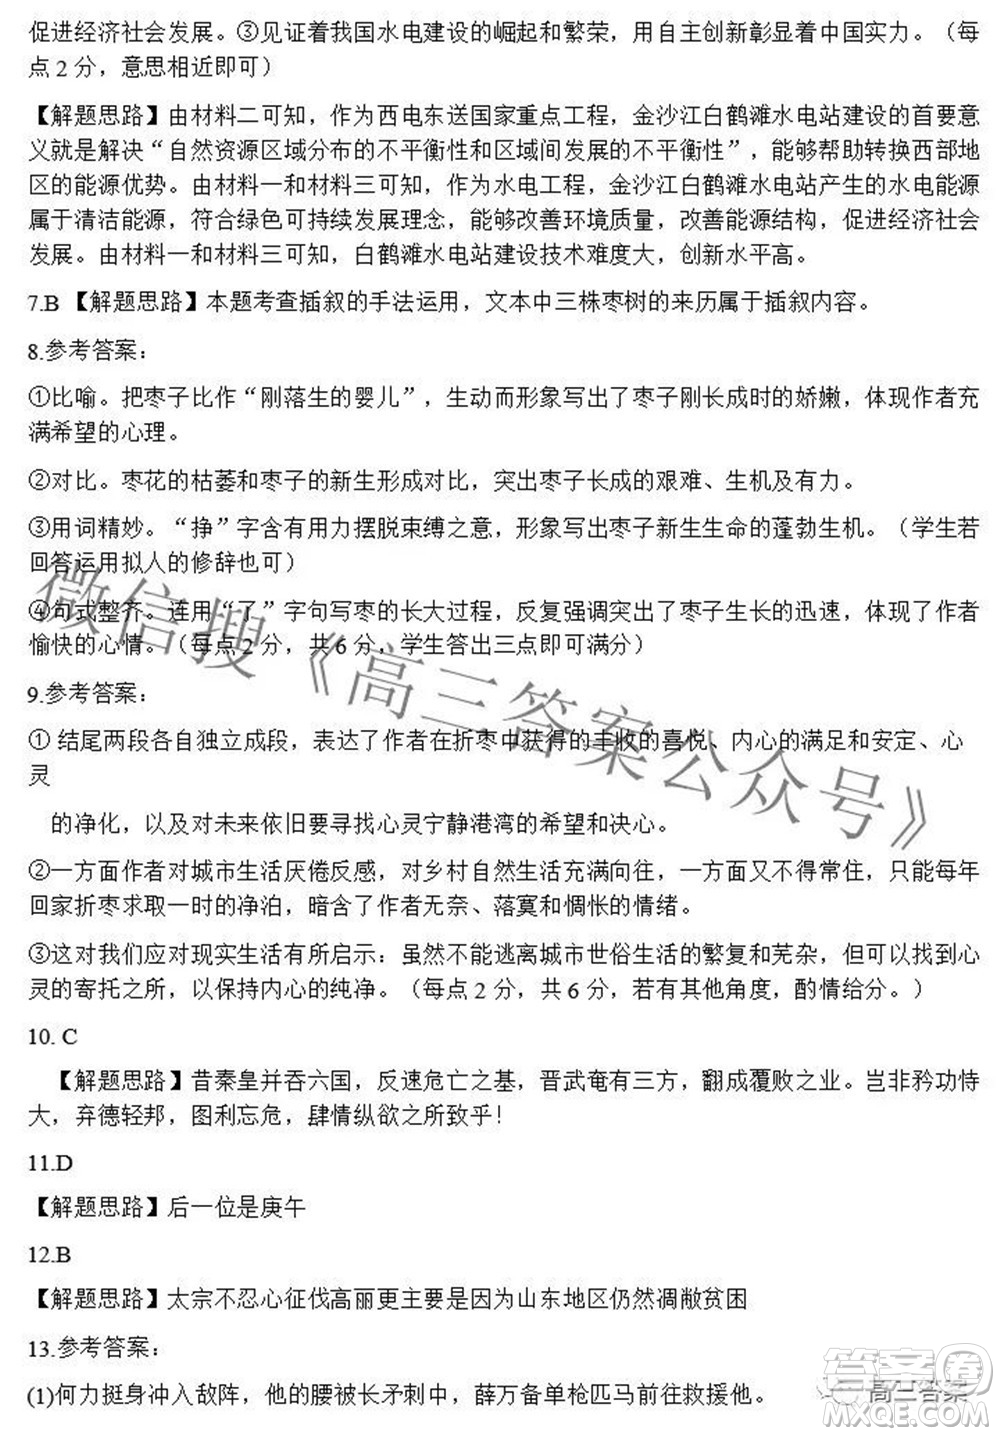 促进经济社会发展。③见证着我国水电建设的崛起和繁荣，用自主创新彰显着中国实力。（每
点 2 分，意思相近即可）
【解题思路】由材料二可知，作为西电东送国家重点工程，金沙江白鹤滩水电站建设的首要意
义就是解决“自然资源区域分布的不平衡性和区域间发展的不平衡性”，能够帮助转换西部地
区的能源优势。由材料一和材料三可知，作为水电工程，金沙江白鹤滩水电站产生的水电能源
属于清洁能源，符合绿色可持续发展理念，能够改善环境质量，改善能源结构，促进经济社会
发展。由材料一和材料三可知，白鹤滩水电站建设技术难度大，创新水平高。
7.B 【解题思路】本题考查插叙的手法运用，文本中三株枣树的来历属于插叙内容。
8.参考答案：
①比喻。把枣子比作“刚落生的婴儿”，生动而形象写出了枣子刚长成时的娇嫩，体现作者充
满希望的心理。
②对比。枣花的枯萎和枣子的新生形成对比，突出枣子长成的艰难、生机及有力。
③用词精妙。“挣”字含有用力摆脱束缚之意，形象写出枣子新生生命的蓬勃生机。（学生若
回答运用拟人的修辞也可）
④句式整齐。连用“了”字句写枣的长大过程，反复强调突出了枣子生长的迅速，体现了作者
愉快的心情。（每点 2 分，共 6 分，学生答出三点即可满分）
9.参考答案：
① 结尾两段各自独立成段，表达了作者在折枣中获得的丰收的喜悦、内心的满足和安定、心
灵
的净化，以及对未来依旧要寻找心灵宁静港湾的希望和决心。
②一方面作者对城市生活厌倦反感，对乡村自然生活充满向往，一方面又不得常住，只能每年
回家折枣求取一时的净泊，暗含了作者无奈、落寞和惆怅的情绪。
③这对我们应对现实生活有所启示：虽然不能逃离城市世俗生活的繁复和芜杂，但可以找到心
灵的寄托之所，以保持内心的纯净。（每点 2 分，共 6 分，若有其他角度，酌情给分。）
10. C
【解题思路】昔秦皇并吞六国，反速危亡之基，晋武奄有三方，翻成覆败之业。岂非矜功恃
大，弃德轻邦，图利忘危，肆情纵欲之所致乎！
11.D
【解题思路】后一位是庚午
12.B
【解题思路】太宗不忍心征伐高丽更主要是因为山东地区仍然凋敝贫困
13.参考答案：
(1)何力挺身冲入敌阵，他的腰被长矛刺中，薛万备单枪匹马前往救援他。
微信搜《高三答案公众号》
高三答案
答案圈
MXQE.COM